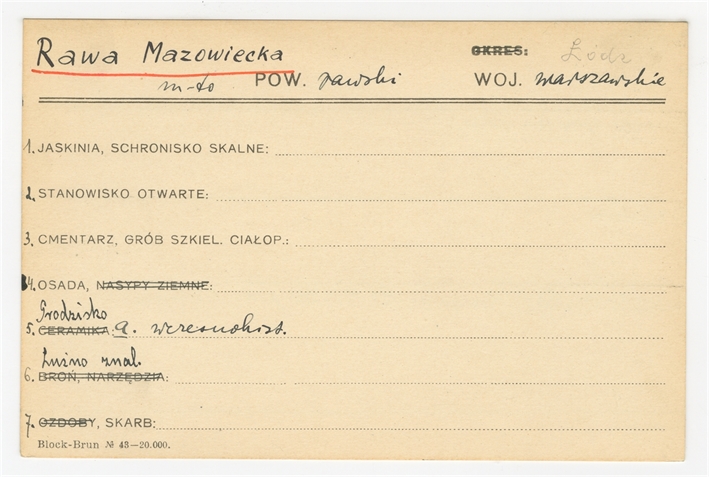 Rawa Mazowiecka OKRES: Łódź
m-to POW. rawski WOJ. warszawskie
1. JASKINIA, SCHRONISKO SKALNE:
2. STANOWISKO OTWARTE:
3. CMENTARZ, GRÓB SZKIEL. CIAŁOP.:
4. OSADA, NASYPY ZIEMNE:
Grodzisko
5. CERAMIKA: a. wczesnohist.
Luźno znal.
6. BROŃ, NARZĘDZIA:
7. OZDOBY, SKARB:
Block-Brun № 43—20.000.